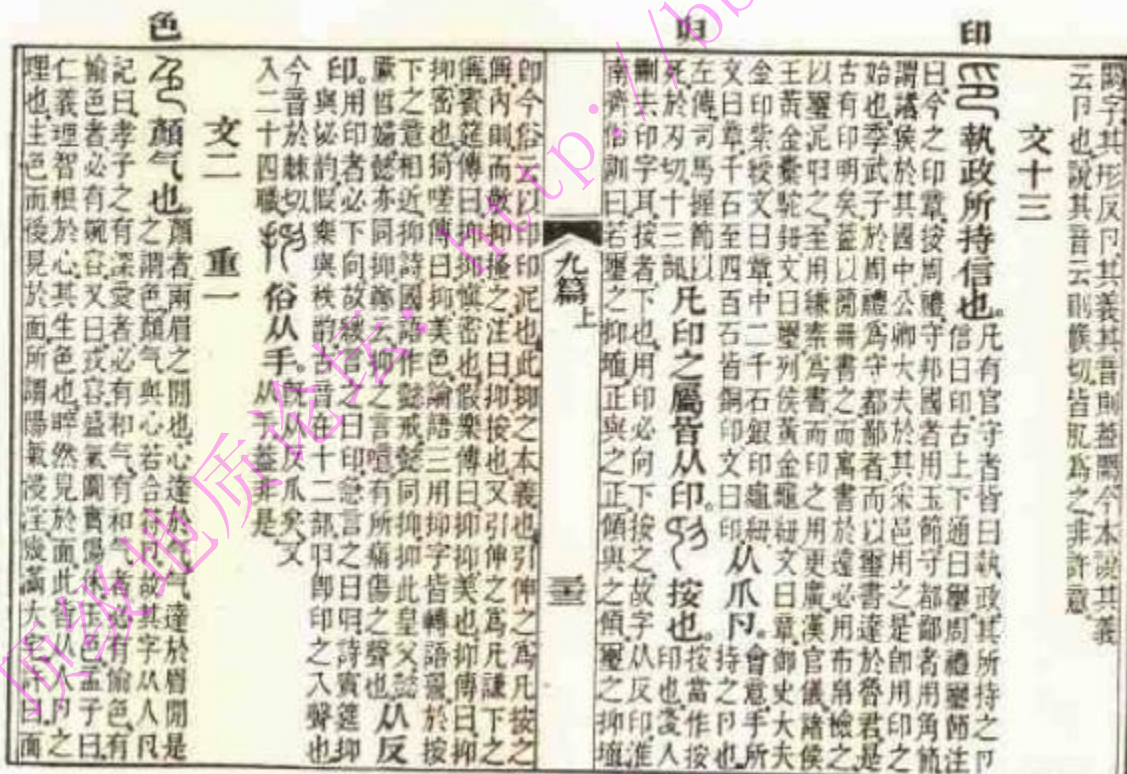 印
归
色
闕字。其形反卪。其義其音則葢闕。今本說其義
云卪也。說其音云則𠋫切。皆肊爲之。非許意。
文十三
執政所持信也。凡有官守者皆曰執政。其所持之卪
信曰印。古上下通曰璽。周禮璽節注
曰。今之印章。按周禮。守邦國者用玉節。守都鄙者用角節。
謂諸侯於其國中。公卿大夫於其采邑用之。是卽用印之
始也。季武子於周禮爲守都鄙者。而以璽書達於魯君。是
古有印明矣。葢以簡冊書之而寓書於遠。必用布帛檢之。
以璽泥归之。至用縑素爲書而印之用更廣。漢官儀。諸侯
王黃金橐駝鈕。文曰璽。列侯黃金龜紐。文曰章。御史大夫
金印紫綬。文曰章。中二千石銀印龜紐。
文曰章。千石至四百石皆銅印。文曰印。从爪卪。會意。手所持之卪也。
左傳。司馬握節以死。於刃切。十二部。凡印之屬皆从印。按也。按當作按印也。淺人
刪去印字耳。按者下也。用印必向下按之。故字从反印。淮
南齊俗訓曰。若璽之抑埴。正與之正。傾與之傾。璽之抑埴。
九篇上
卽今俗云以印印泥也。此抑之本義也。引伸之爲凡按之
偁。內則。而敬抑搔之。注曰。抑。按也。又引伸之爲凡謙下之
偁。賓筵傳曰。抑抑。愼密也。假樂傳曰。抑抑。美也。抑傳曰。抑抑。密也。猗嗟傳曰。抑。美色。論語三用抑字。皆轉語䛐。於按
下之意相近。抑詩。國語作懿戒。懿同抑。抑此皇父。懿
厥哲婦。懿亦同抑。鄭云。抑之言噫。有所痛傷之聲也。从反
印。用印者必下向。故緩言之曰印。急言之曰归。詩賓筵抑
與怭韵。假樂與秩韵。古音在十二部。归卽印之入聲也。
今音於棘切。俗从手。旣从反爪矣。又从手。葢非是。
入二十四職。
文二 重一
顏气也。顏者。兩眉之閒也。心達於气。气達於眉閒。是
之謂色。顏气與心若合符卪。故其字从人卪。
記曰。孝子之有深愛者必有和气。有和气者必有愉色。有
愉色者必有婉容。又曰。戎容盛氣闐實陽休玉色。孟子曰。
仁義理智根於心。其生色也。睟然見於面。此皆从人卪之
理也。生色而後見於面。所謂陽氣浸淫。幾滿大宅。許曰。面